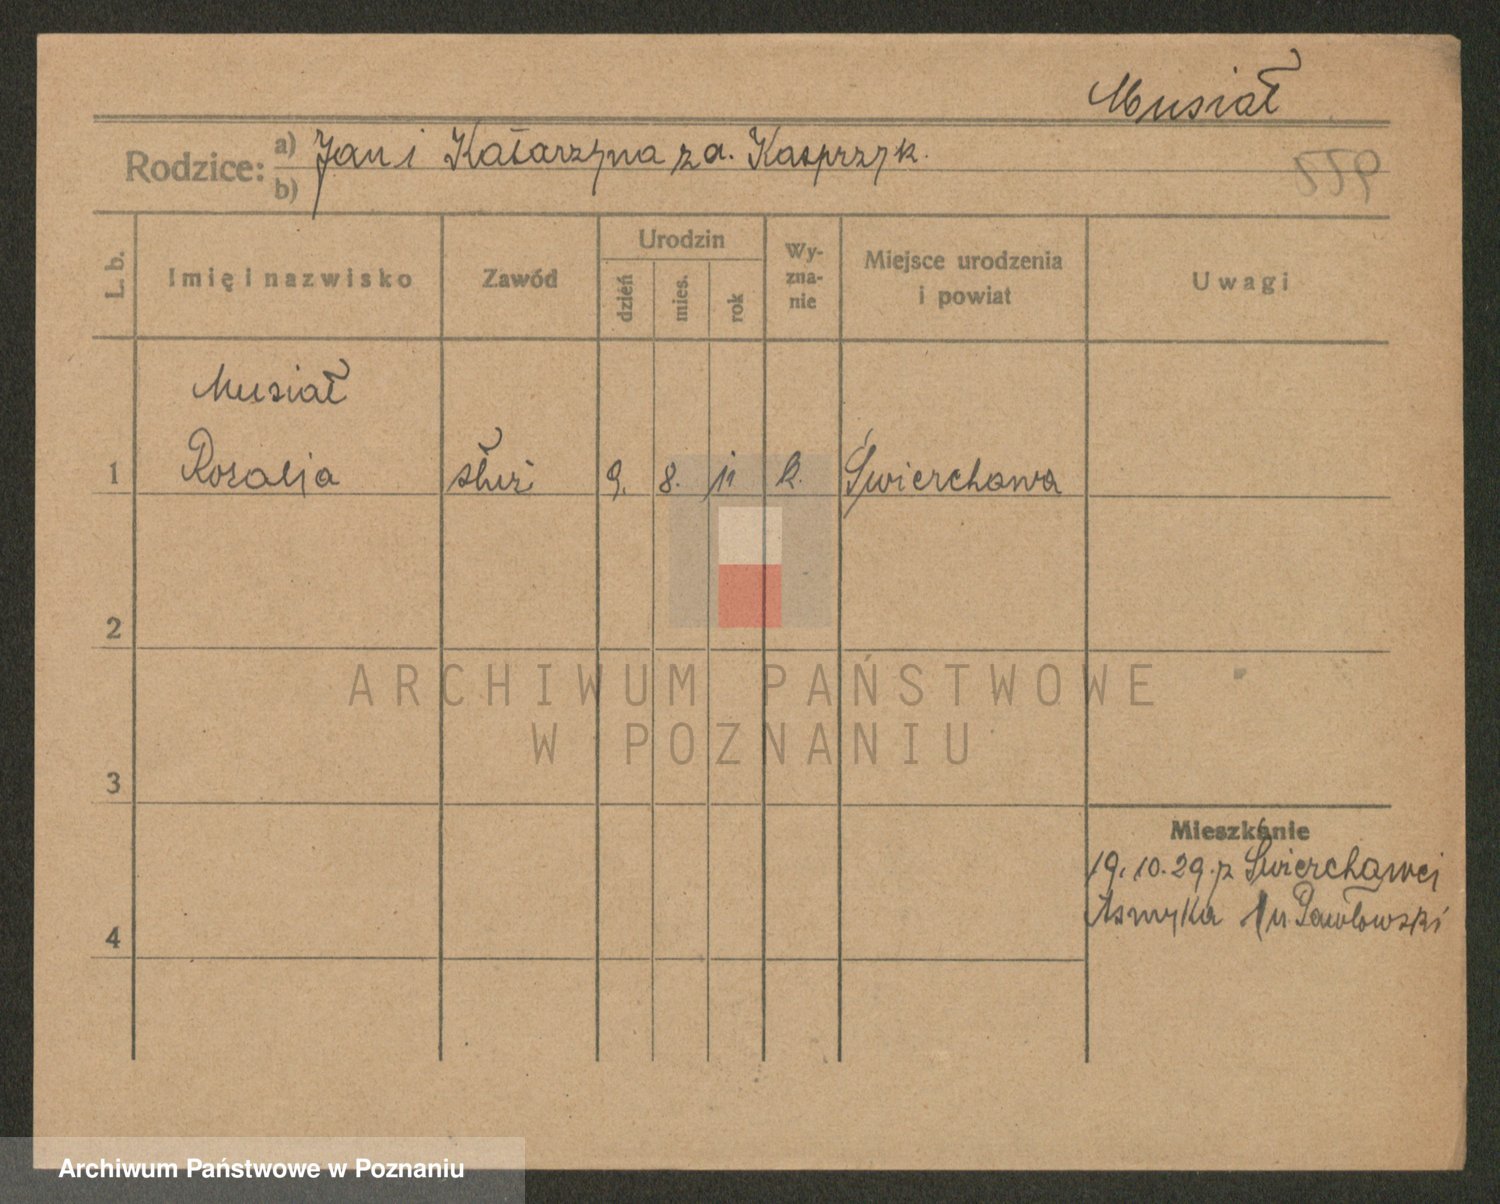 Musiał
Rodzice: a) Jan i Katarzyna za. Kasprzyk.
b)
559
L. b.
Imię i nazwisko
Zawód
Urodzin
dzień
mies.
rok
Wy-
zna-
nie
Miejsce urodzenia
i powiat
Uwagi
Musiał
1 Rozalja służ 9. 8. 11 k. Świerchowa
2
3
4
Mieszkanie
19.10.29. z Świerchowej
1 u Pawłowski
ARCHIWUM PAŃSTWOWE
W POZNANIU
Archiwum Państwowe w Poznaniu